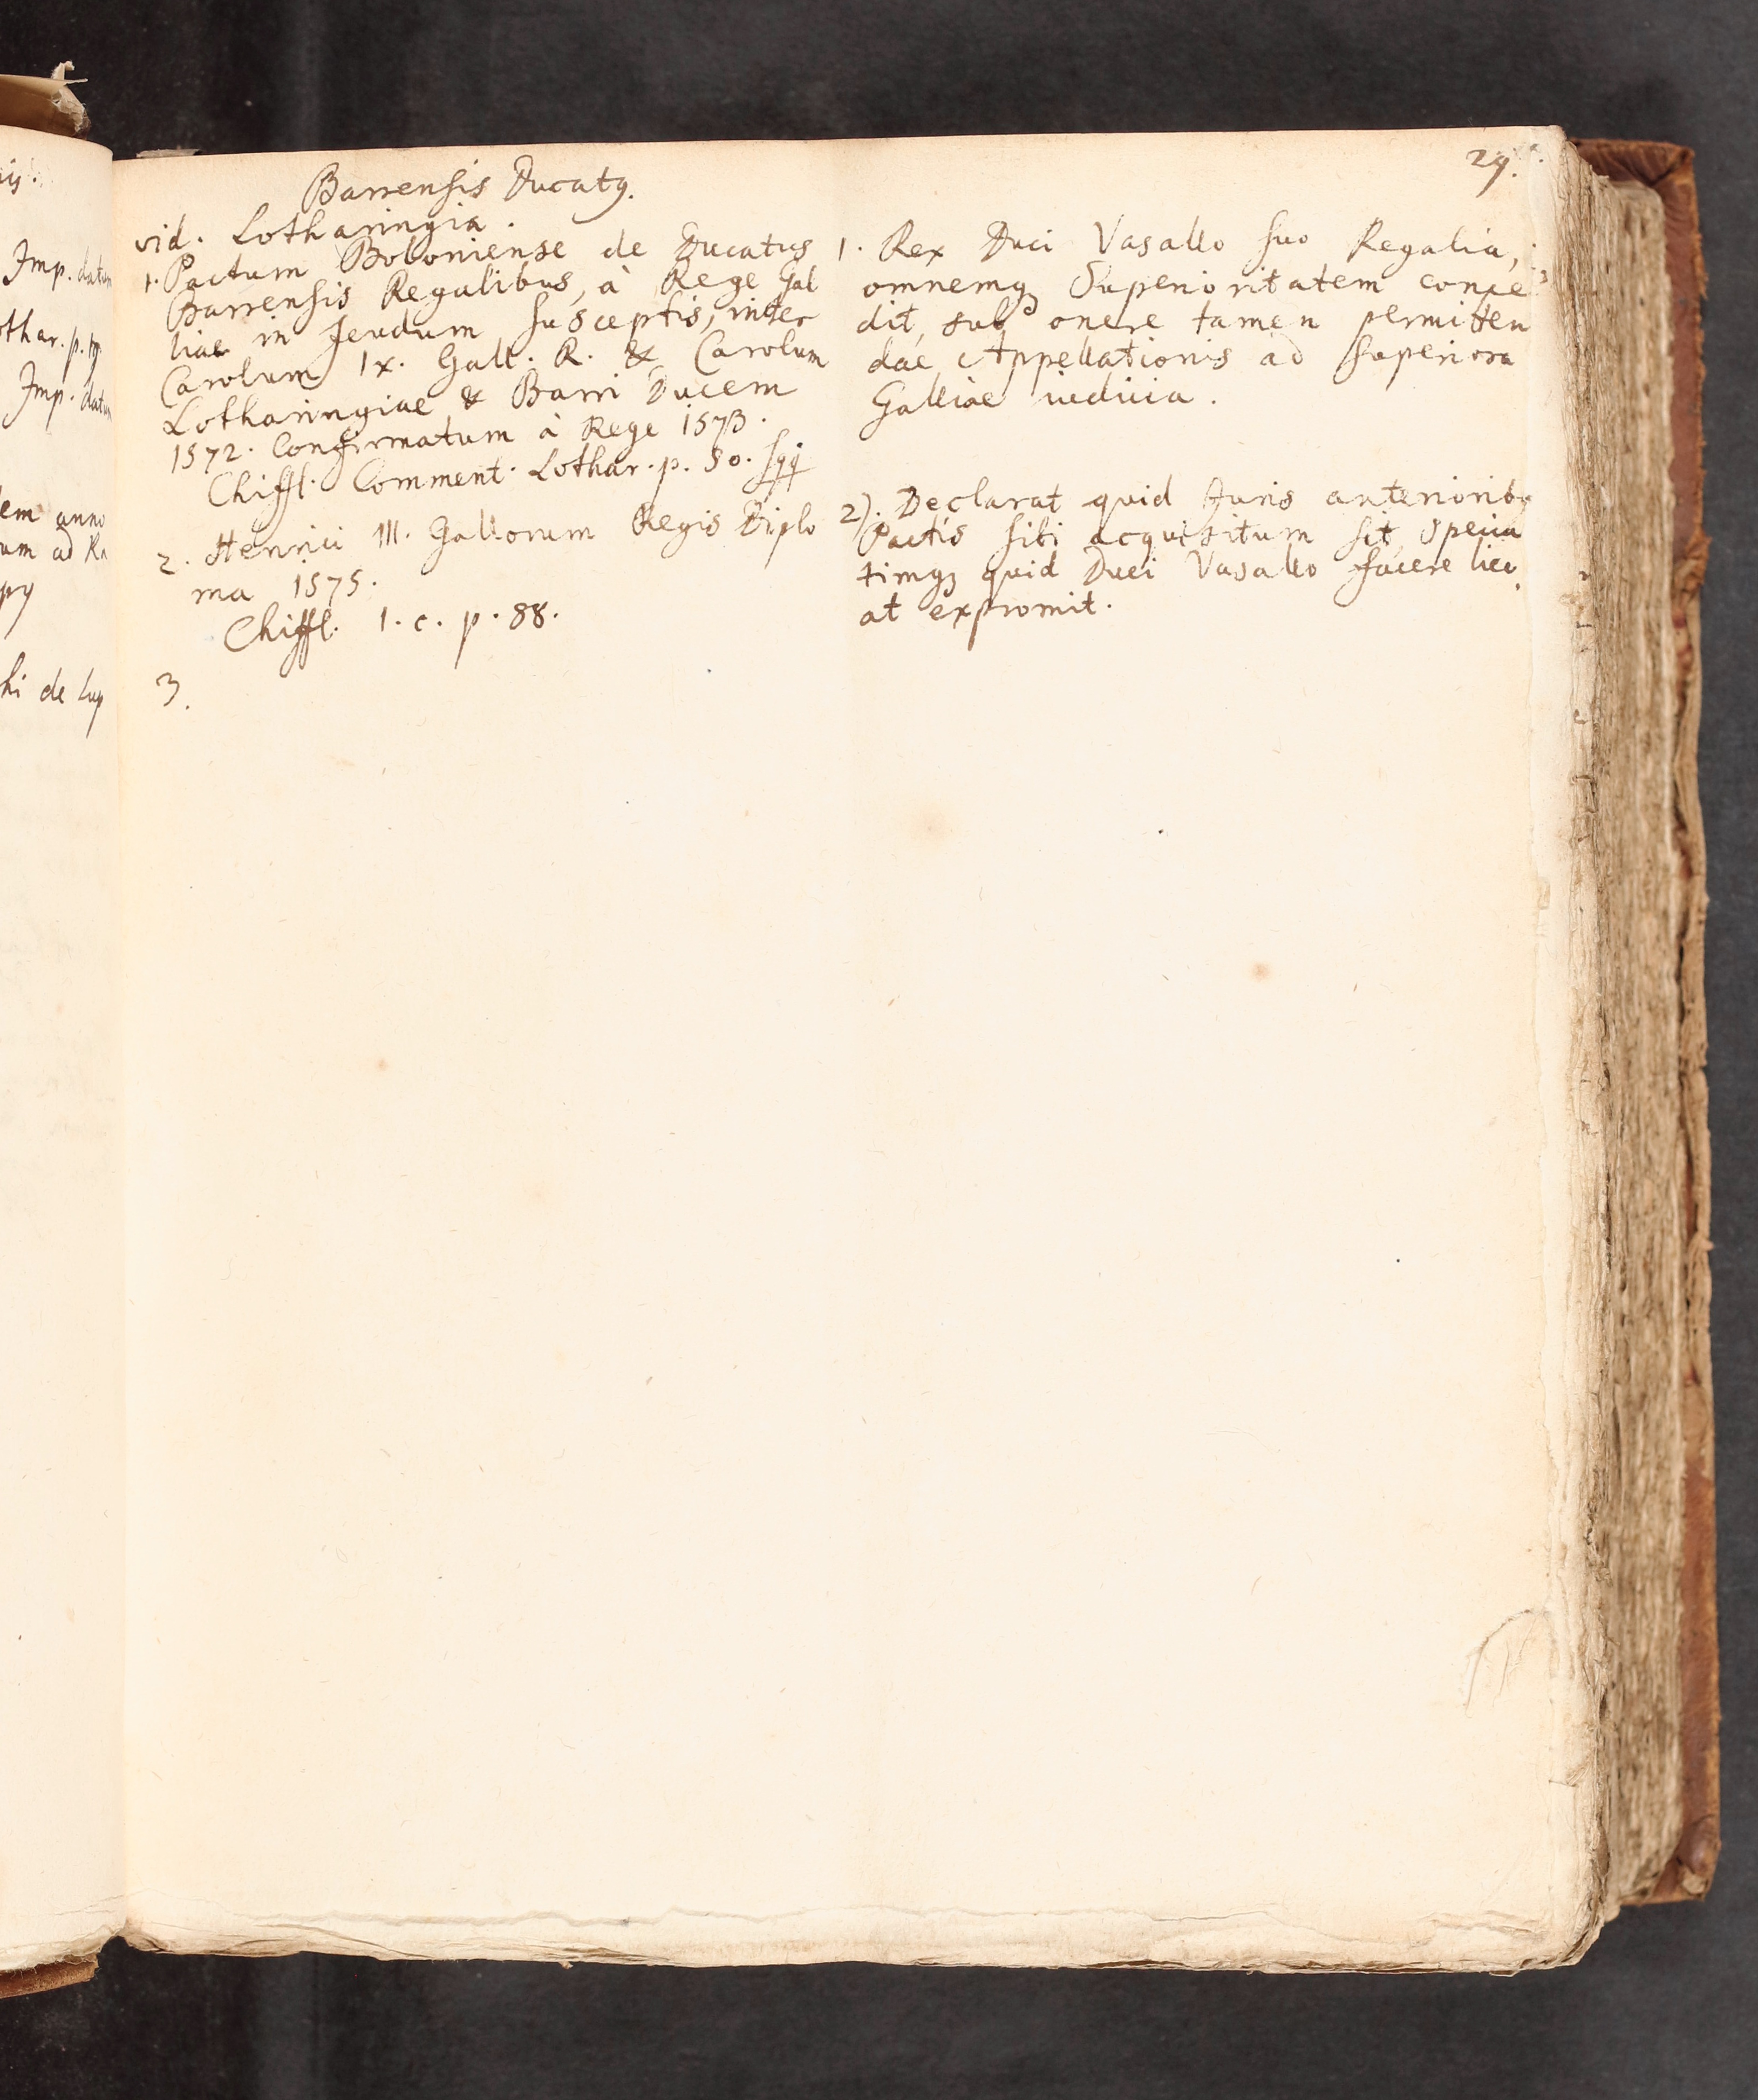 29.
Barrensis Ducatꝯ.
vid. Lotharingia.
1. Pactum Boloniense de Ducatus
Barrensis Regalibus, à Rege Gal
liae in feudum susceptis, inter
Carolum IX. Gall. R. & Carolum
Lotharingiae & Barri Ducem
1572. Confirmatum à Rege 1573.
Chiffl. Comment. Lothar. p. 80. sqq
2. Henrici III. Gallorum Regis Diplo
ma 1575.
Chiffl. l. c. p. 88.
3.
1. Rex Duci Vasallo suo Regalia,
omnemqꝫ Superioritatem conce
dit, sub onere tamen permitten
dae Appellationis ad superiora
Galliae iudicia.
2). Declarat quid Juris anterioribꝯ
Pactis sibi acquisitum sit, specia
timqꝫ quid Duci Vasallo facere lice
at expromit.
Imp. datum
othar. p.
Imp. datum
em anno
um ad
hi de Lup